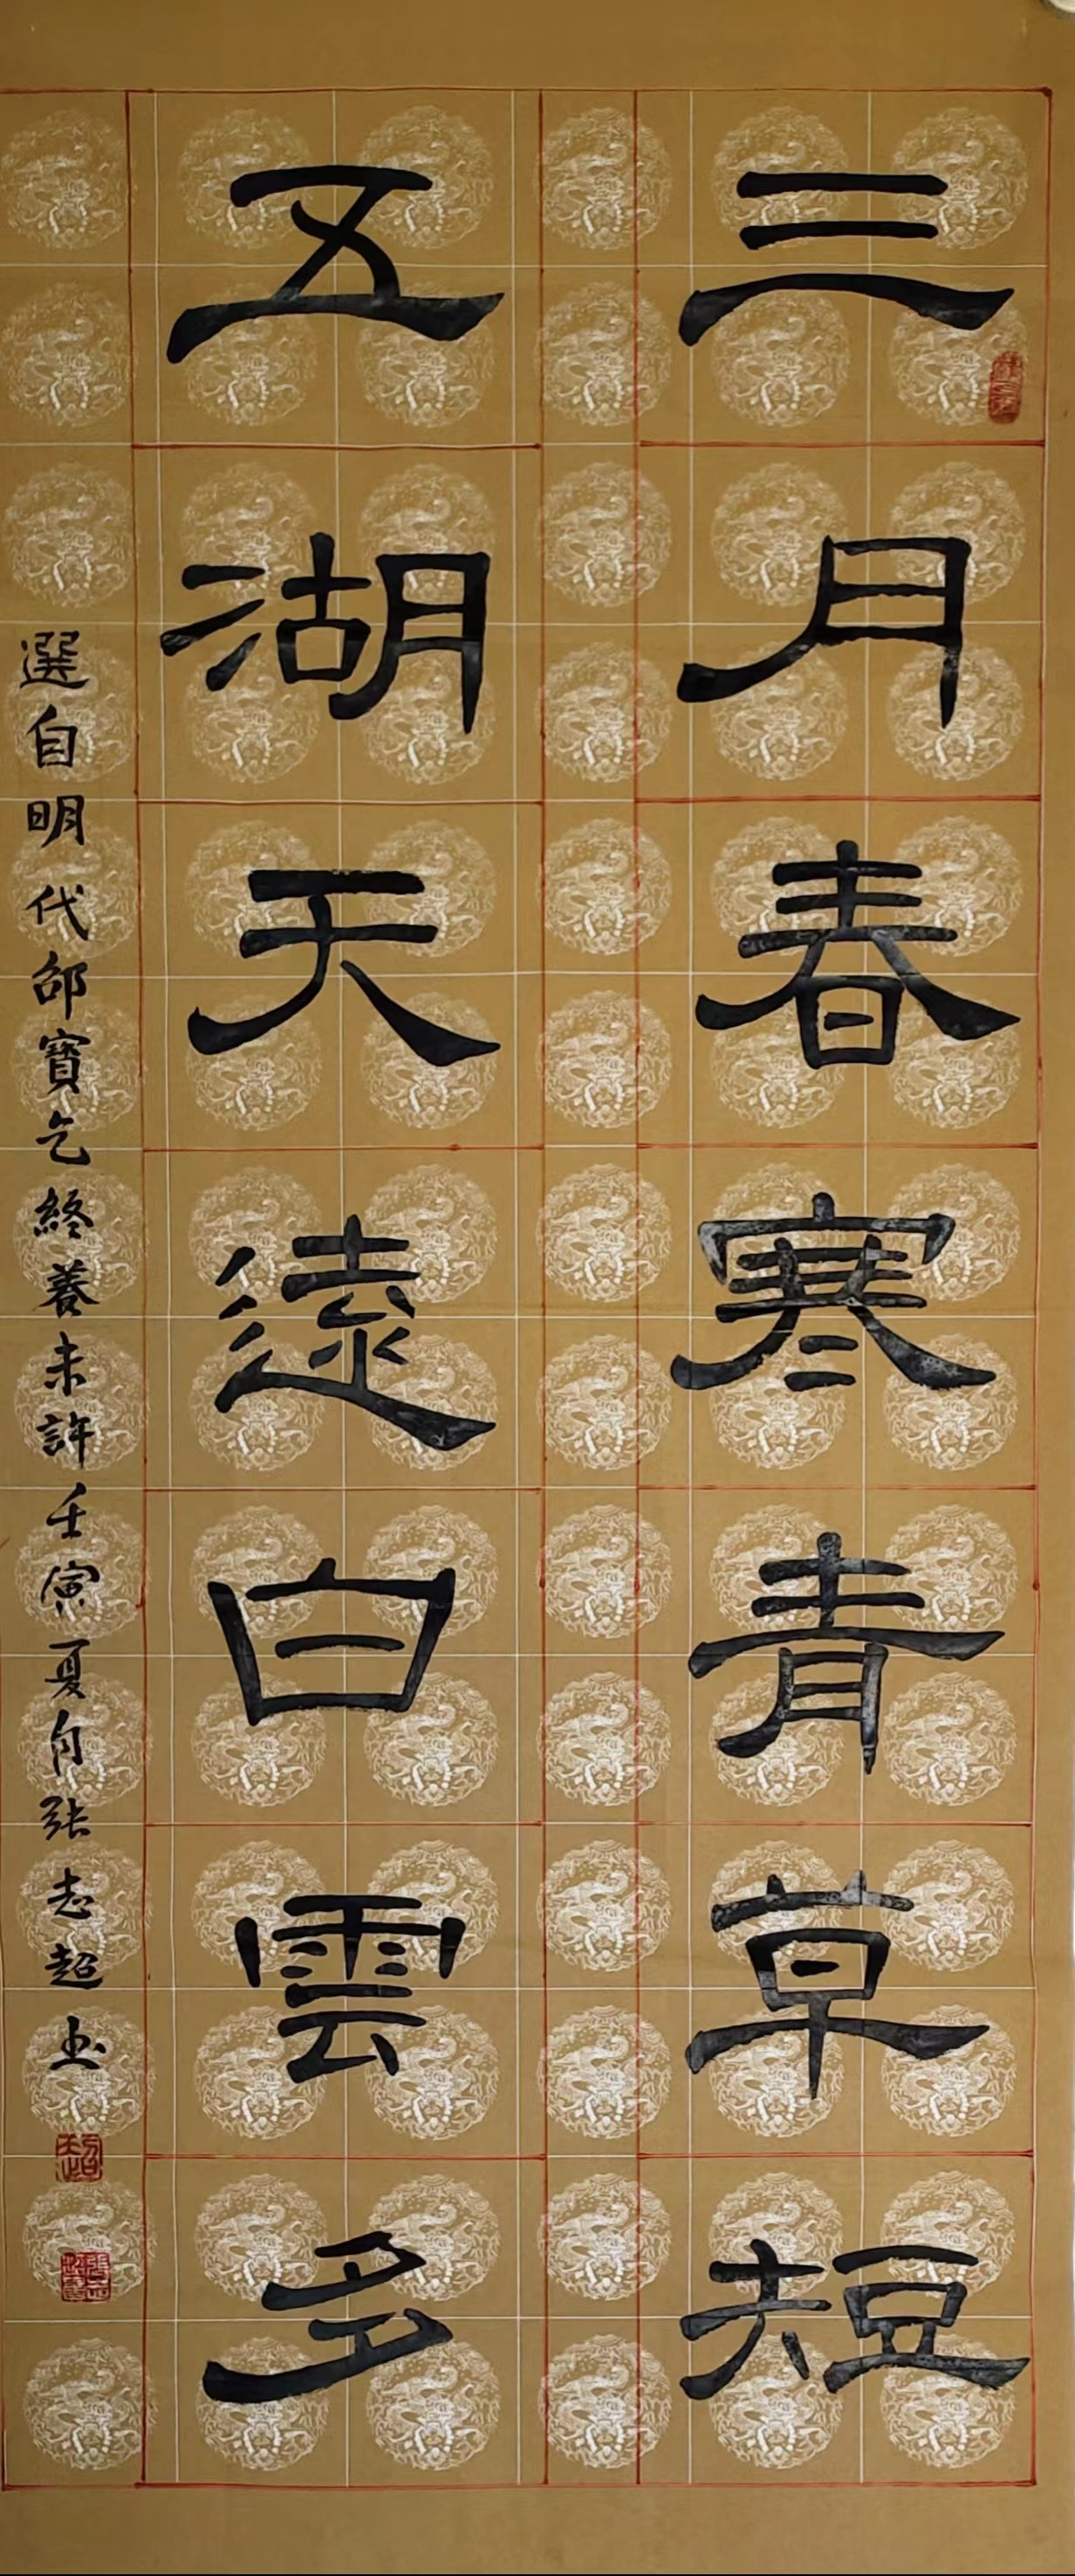 三月春寒青草短
五湖天遠白雲多
選自明代邵寶乞終養未許壬寅夏月张志超书